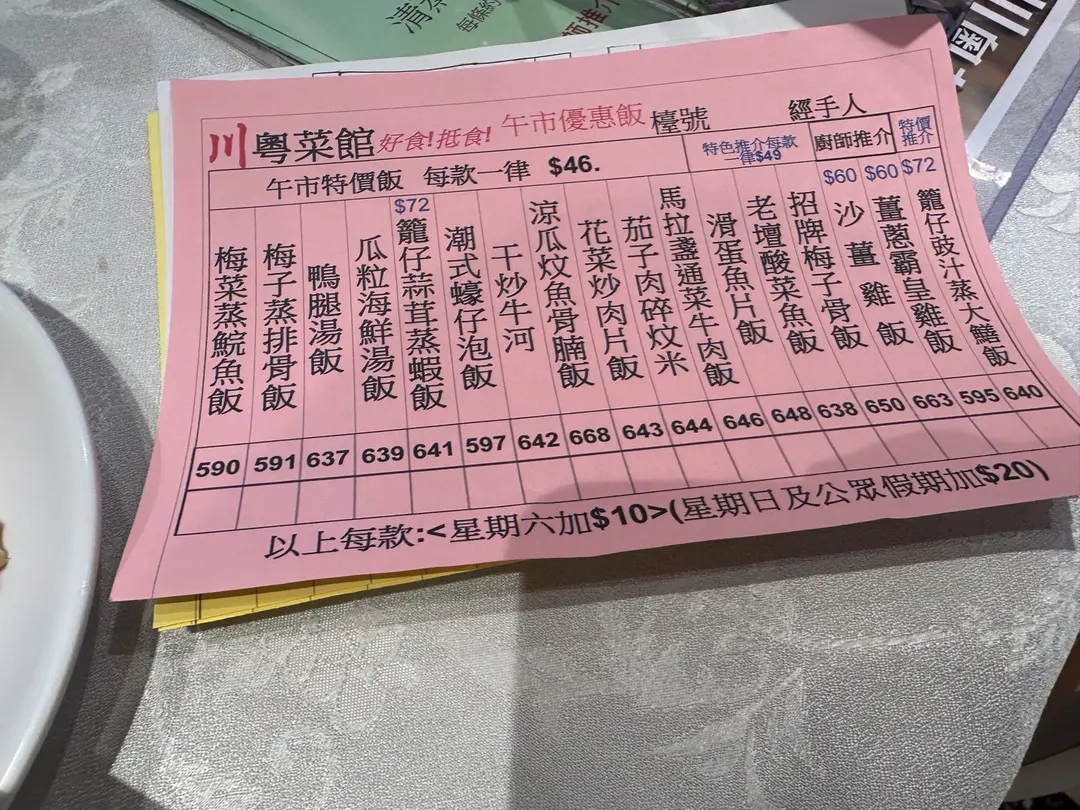 清蒸
每條約
師推介
川
川粵菜館 好食!抵食! 午市優惠飯 檯號 經手人
午市特價飯 每款一律 $46.
特色推介每款
一律$49
廚師推介
特價
推介
梅菜蒸鯇魚飯
梅子蒸排骨飯
鴨腿湯飯
瓜粒海鮮湯飯
$72
籠仔蒜茸蒸蝦飯
潮式蠔仔泡飯
干炒牛河
涼瓜炆魚骨腩飯
花菜炒肉片飯
茄子肉碎炆米
馬拉盞通菜牛肉飯
滑蛋魚片飯
老壇酸菜魚飯
招牌梅子骨飯
$60
沙薑雞飯
$60
薑蔥霸皇雞飯
$72
籠仔豉汁蒸大鱔飯
590 591 637 639 641 597 642 668 643 644 646 648 638 650 663 595 640
以上每款:<星期六加$10>(星期日及公眾假期加$20)